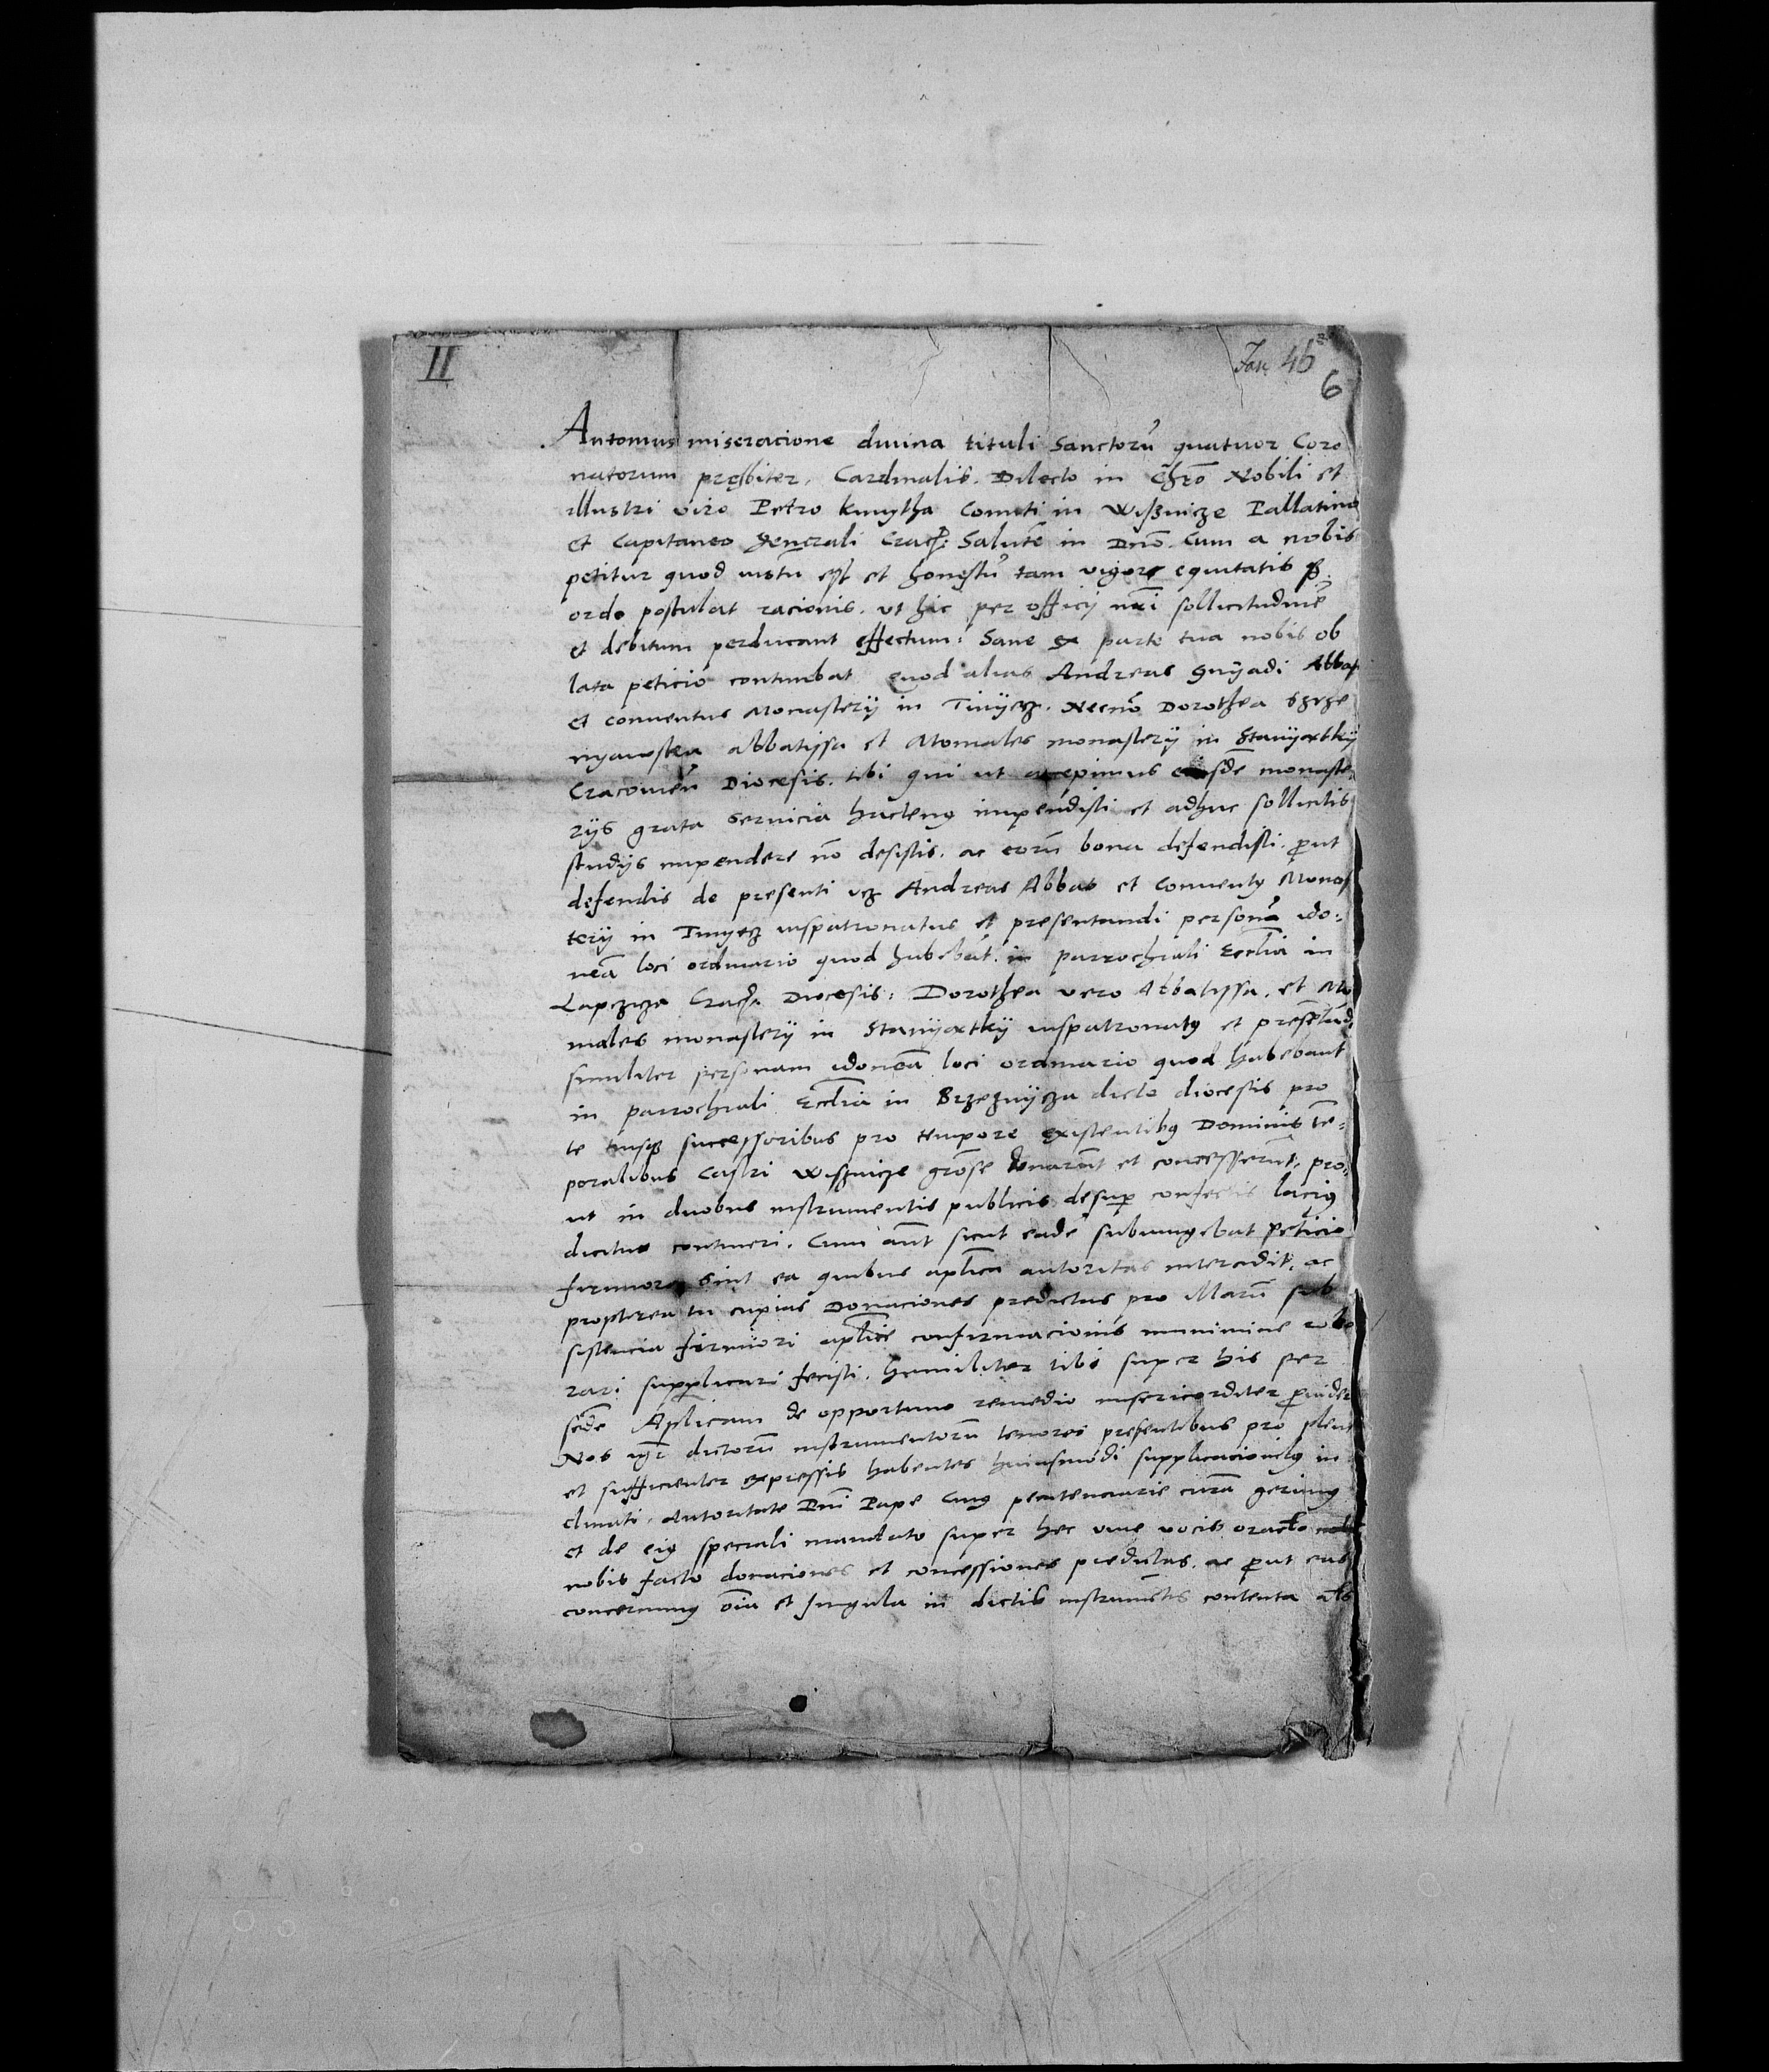 II
Fasc. 46
6
Antonius miseracione divina tituli Sanctorū quatuor Coro
natorum presbiter. Cardinalis. Dilecto in Chrō Nobili et
illustri viro Petro kmytha Comiti in Wisznicze Pallatino
et Capitaneo generali Crac: Salutē in Dnō. Cum a nobis
petitur quod iustū est et honestū tam vigor equitatis
ordo postulat racionis. ut hic per officij nrī sollicitudinē
et debitum perducant effectum: Sane ex parte tua nobis ob
lata peticio continebat quod alias Andreas gnÿadi Abbas
et conventus Monasterÿ in Tinÿecz. Necnō Dorothea Szrze
nyawska abbatissa et Moniales monasterÿ in Stanÿatkÿ
Cracovieñ Diocesis. tibi qui ut accepimus eisdē monaste
rÿs grata servicia hactenꝰ impendisti et adhuc sollicitis
studÿs impendere nō desistis. ac eorū bona defendisti. p̄ut
defendis de presenti vz Andreas Abbas et Conventꝰ Monas
terÿ in Tinyecz iuspatronatus et presentandi personā ido:
neā loci ordinario quod habebāt. in parrochiali Ecclīa in
Lapczicza Crac Diocesis: Dorothea vero Abbatissa. et Mo
niales monasterÿ in Stanÿatkÿ iuspatronatꝰ et presētādi
similiter personam idoneā loci ordinario quod habebant
in parrochiali Ecclīa in Brzeznÿcza dicte diocesis pro
te tuisqꝫ successoribus pro tempore existentibꝰ Dominis tē:
poralibus Castri Wisznicze grōse donarūt et concesserūt. pro
ut in duobus instrumentis publicis desup̄ confectis laciꝰ
dicitur contineri. Cum aūt sicut eadē subiungebat peticio
firmiora sint ea quibus aplīca autoritas intercedit. ac
propterea tu cupias Donaciones predictas pro illarū sub
sistencia firmiori aplīce confirmacionis munimine robo
rari supplicari fecisti. humiliter tibi super his per
sedē Aplicam de opportuno remedio misericorditer p̄vider
Nos igr̄ dictorū instrumentorū tenores presentibus pro plene
et sufficienter expressis habentes huiusmodi supplicacionibꝰ in
clinati. Autoritate Dnī Pape Cuiꝰ penitenciarie curā gerimꝰ
et de eiꝰ speciali mandato super hec vive vocis oraclo
nobis facto donaciones et concessiones predictas. ac p̄ut eas
concernunt oīa et singula in dictis instrumētis contenta als